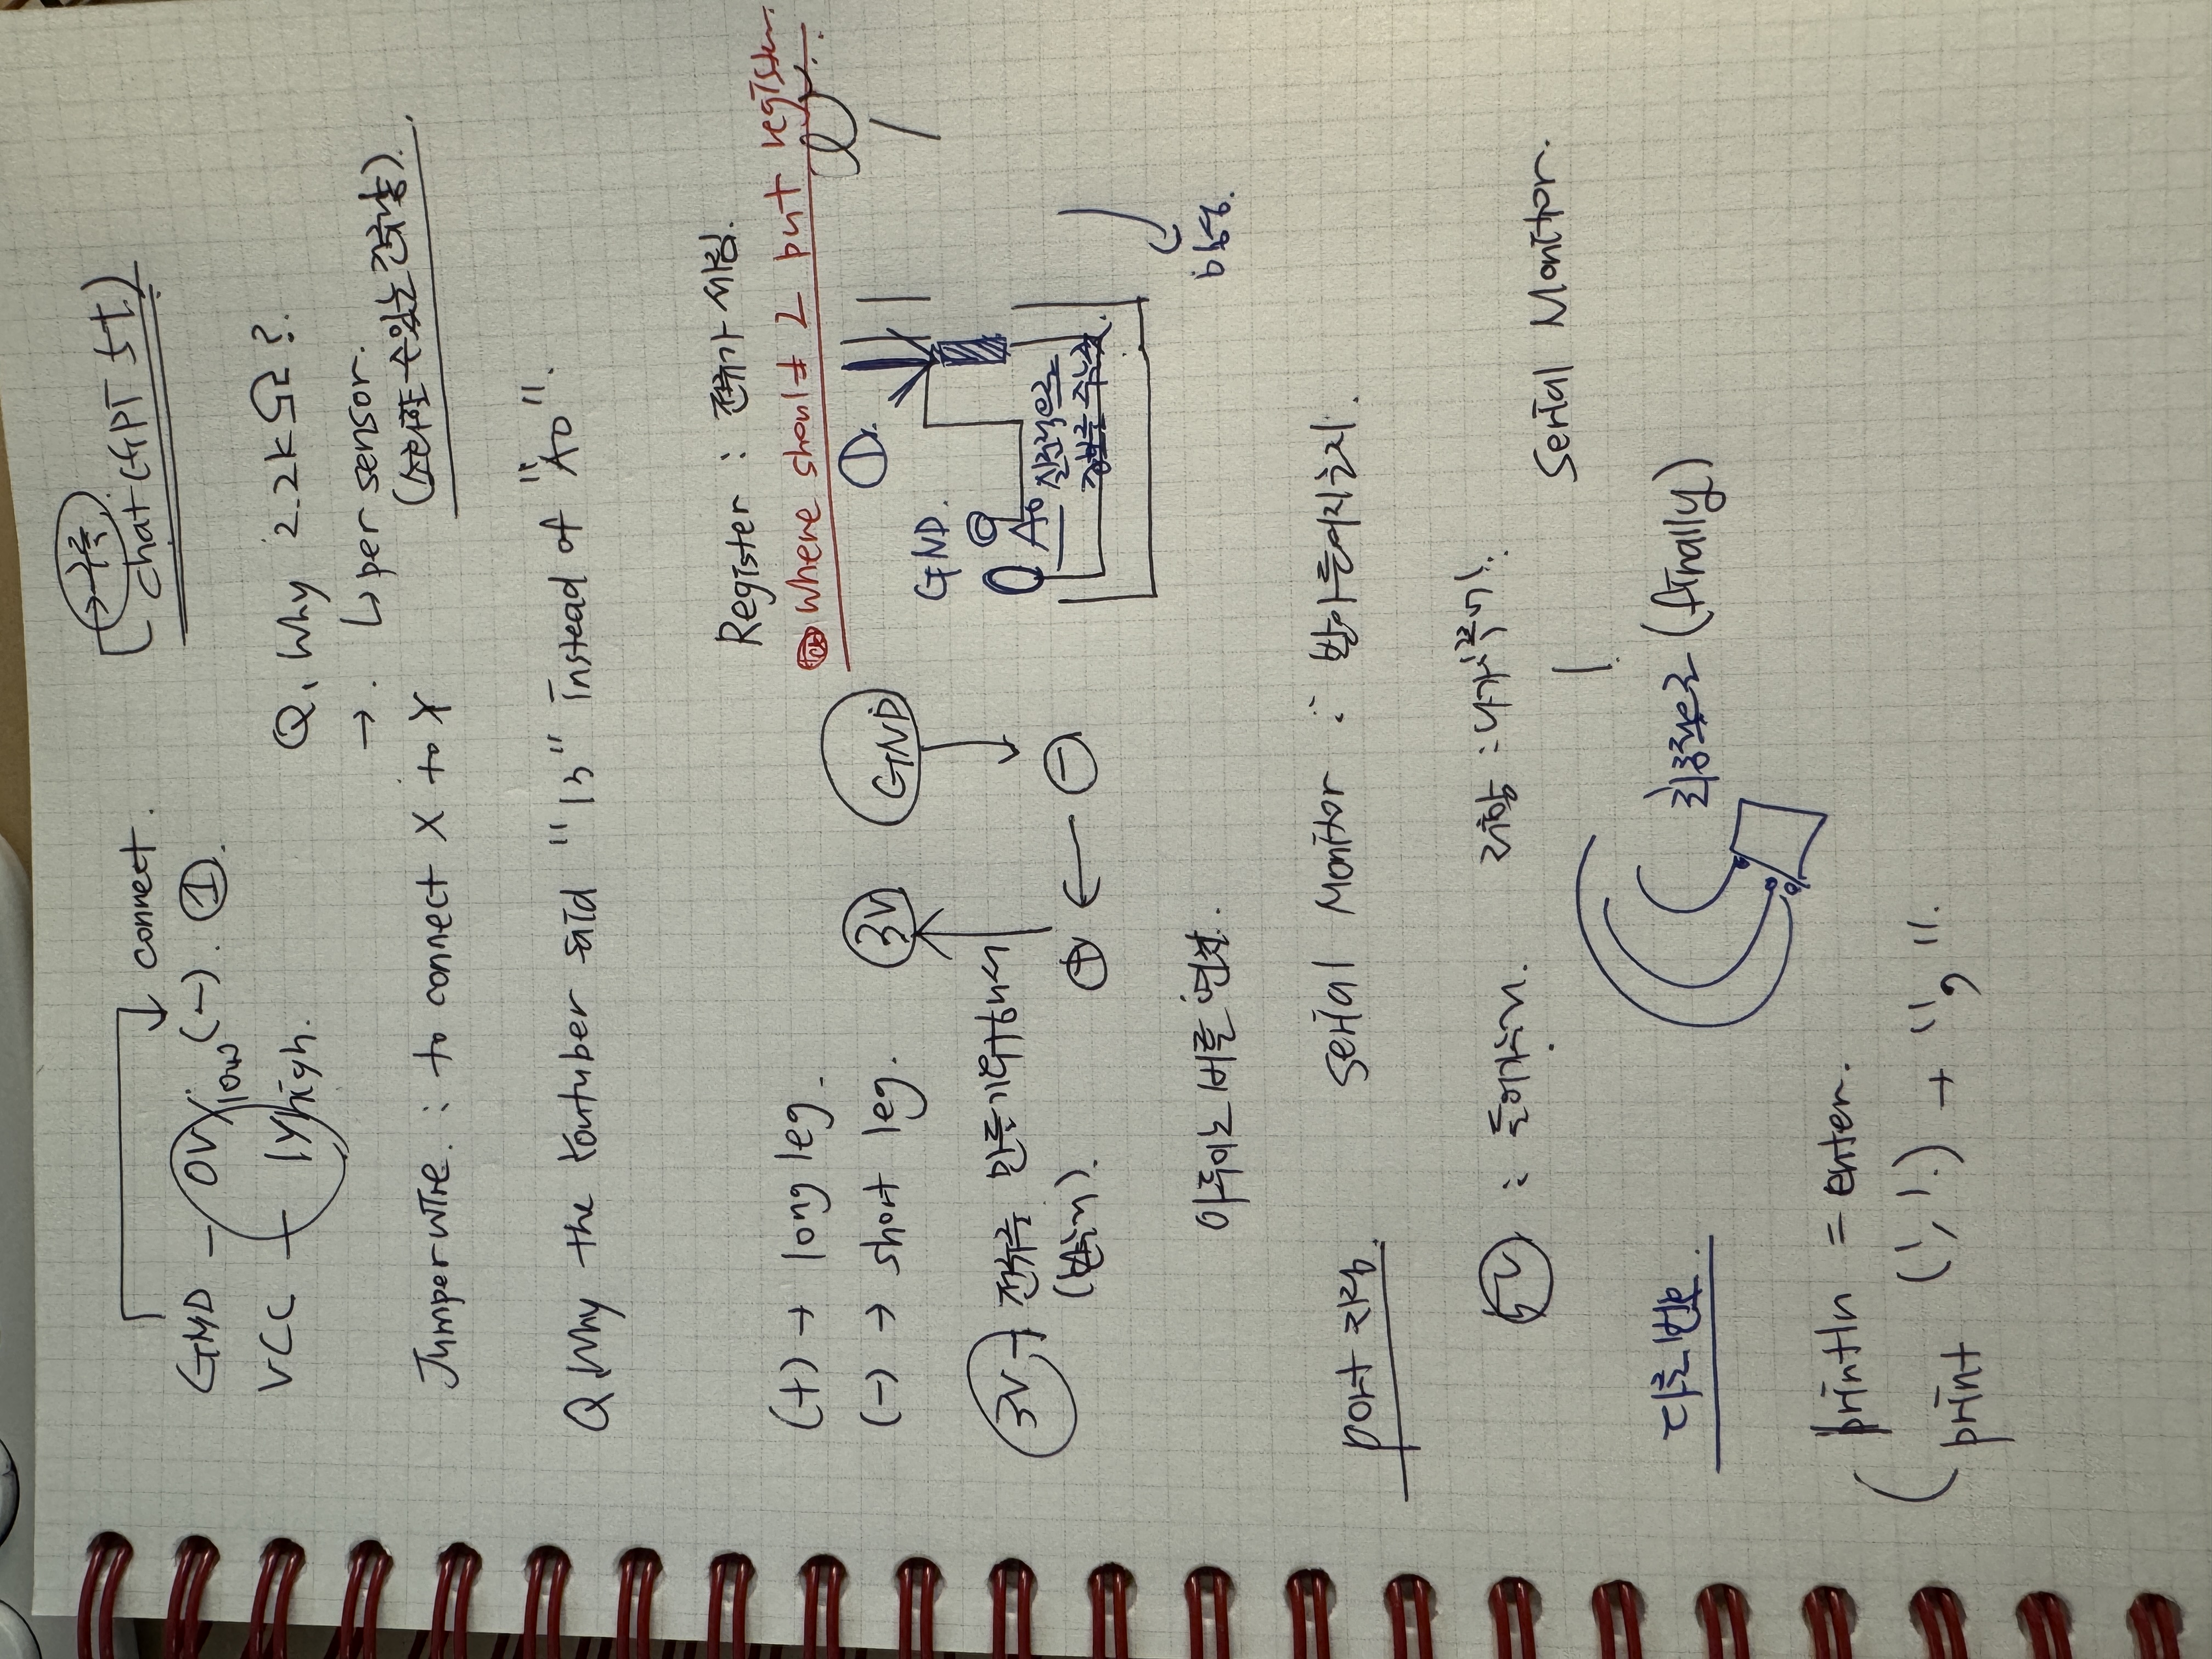 구글
chat GPT 5t)
connect.
GND - 0V/low (-). ①.
VCC - 1V/high.
Q. Why 2.2KΩ?
→. ↳ per sensor.
수 있는 전류량).
Jumper wire. : to connect X to Y
Q. Why the Youtuber said "13" instead of "A0".
Register : 전류가 세짐.
where should I put register
(+) → long leg.
(-) → short leg.
3V GND
①.
GND.
3V → 전류를 만들기 위해서
(받는거).
+ ← -
A0 실질적으로
정보를 주는 곳.
아두이노 버를 연결.
port 지정.
Serial Monitor : 받아 들여지는지.
5V : 들어가는거.
저항 : 나가는
Serial Monitor.
다른 번호.
최종적으로 (finally)
println = enter.
print (','.) → ",".